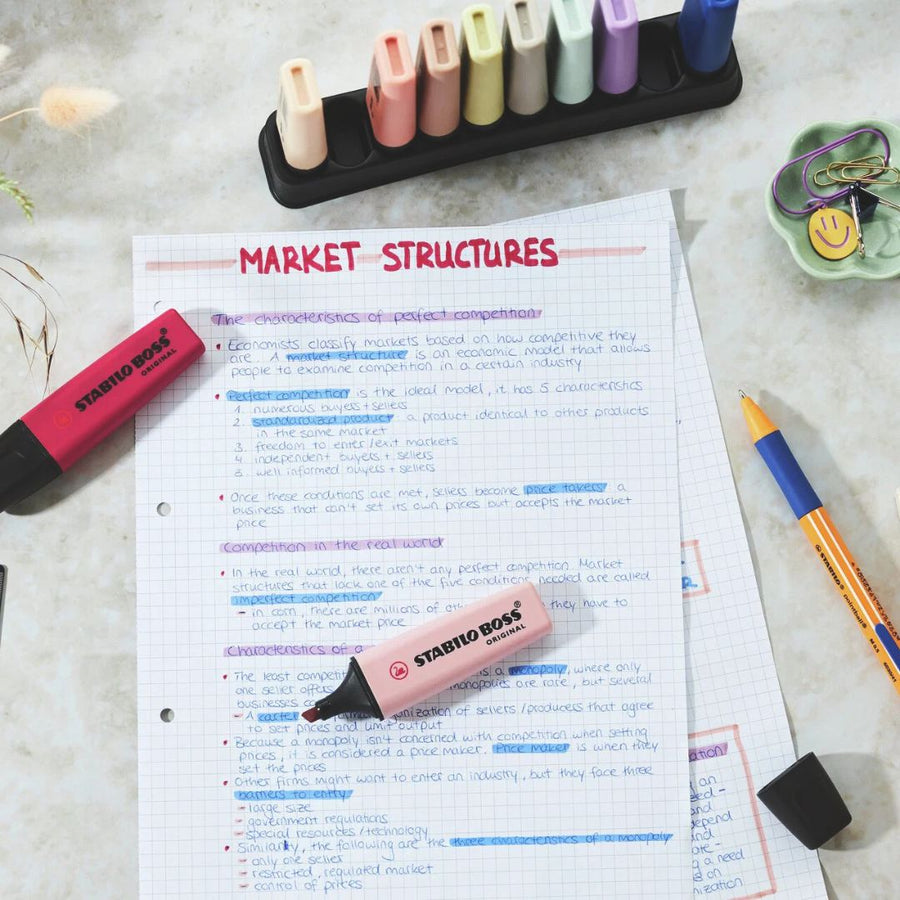 MARKET STRUCTURES
The characteristics of perfect competition
Economists classify markets based on how competitive they
are. A market structure is an economic model that allows
people to examine competition in a certain industry
Perfect competition is the ideal model, it has 5 characteristics
1. numerous buyers + sellers
2. standardized product a product identical to other products
in the same market
3. freedom to enter/exit markets
4. independent buyers + sellers
5. well informed buyers + sellers
Once these conditions are met, sellers become price takers a
business that can't set its own prices but accepts the market
price
Competition in the real world
In the real world, there aren't any perfect competition. Market
structures that lack one of the five conditions needed are called
imperfect competition
- in corn, there are millions of they have to
accept the market price
Characteristics of a
The least is a monopoly, where only
one seller offers monopolies are rare, but several
businesses
- A cartel organization of sellers/producers that agree
to set prices and limit output
Because a monopoly isn't concerned with competition when setting
prices, it is considered a price maker. Price maker is when they
set the prices
Other firms might want to enter an industry, but they face three
barriers to entry
- large size
- government regulations
- special resources/technology
Similarly, the following are the three characteristics of a monopoly
- only one seller
- restricted, regulated market
- control of prices
STABILO BOSS
ORIGINAL
STABILO BOSS
ORIGINAL
STABILO
an
and
depend
and
a need
on